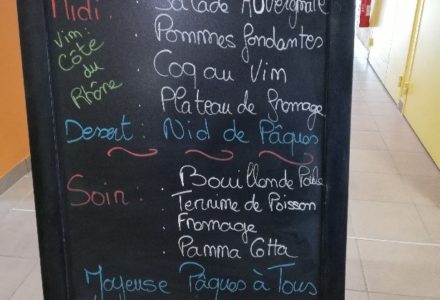 Midi : . Salade Auvergnate
Vim : Côte du Rhône
. Pommes fondantes
. Coq au Vim
. Plateau de fromage
Dessert : Nid de Pâques
Soir : . Bouillon de Poule
. Terrine de Poisson
. Fromage
. Pamma Cotta
Joyeuse Pâques à Tous